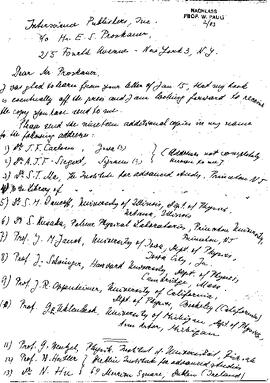 NACHLASS
PROF. W. PAULI
Interscience Publishers, Inc.
℅ Mr. E. S. Proskauer
215 Fourth Avenue - New York 3, N.Y.
Dear Mr Proskauer,
I was glad to learn from your letter of Jan 15, that my book
is eventually off the press and I am looking forward to receive
the copy you have send to me.
Please send the nineteen additional copies in my name
to the following address:
1) Dr. J. F. Carlson,
2) Dr. A. J. F. Siegert, Syracuse (Address not completely known to me)
3) Dr. S. T. Ma, The Institute for advanced study, Princeton N.J.
4) To the Library of
5) Dr. S. M. Dancoff, University of Illinois, dept of Physics, Urbana, Illinois
6) Dr. S. Kusaka, Palmer Physical Laboratories, Princeton University, Princeton, NJ
7) Prof. J. M. Jauch, University of Iowa, Dept. of Physics, Iowa City, Ia.
8) Prof. J. Schwinger, Harvard University, Dept of Physics, Cambridge, Mass
9) Prof. J. R. Oppenheimer, University of California, Dept of Physics, Berkeley (California)
10) Prof. G. E. Uhlenbeck, University of Michigan, Dept of Physics, Ann Arbor, Michigan
11) Prof. G. Wentzel, Physik. Institut d. Universität, Zürich
12) Prof. W. Heitler Dublin Institute for advanced studies
13) Dr. N. Hu 64 Merrion Square, Dublin (Ireland)